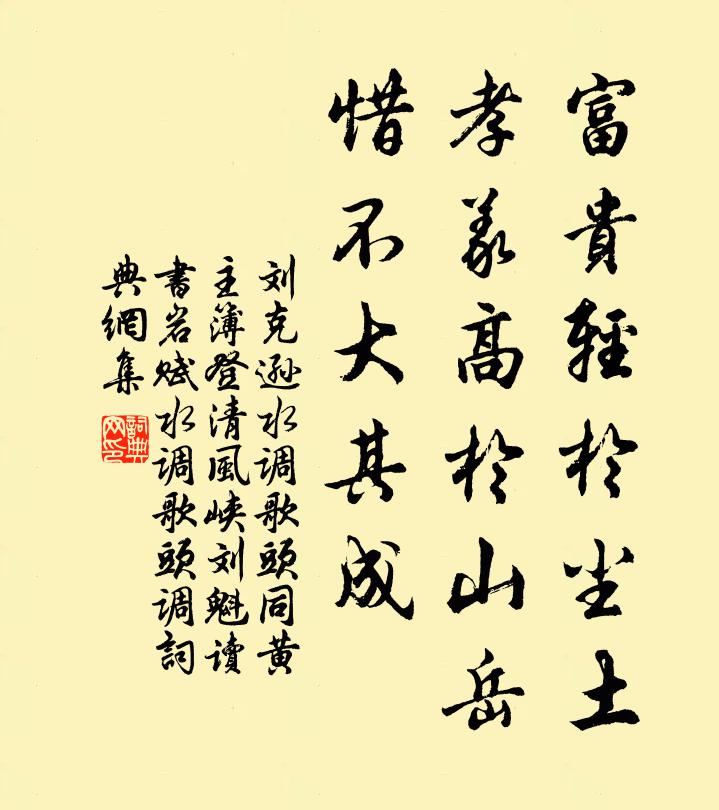 富貴輕於尘土
孝義高於山岳
惜不大其成
刘克遜水调歌頭同黄
主簿登清風峡刘魁讀
書岩赋水调歌頭调詞
典網集
詞典网印